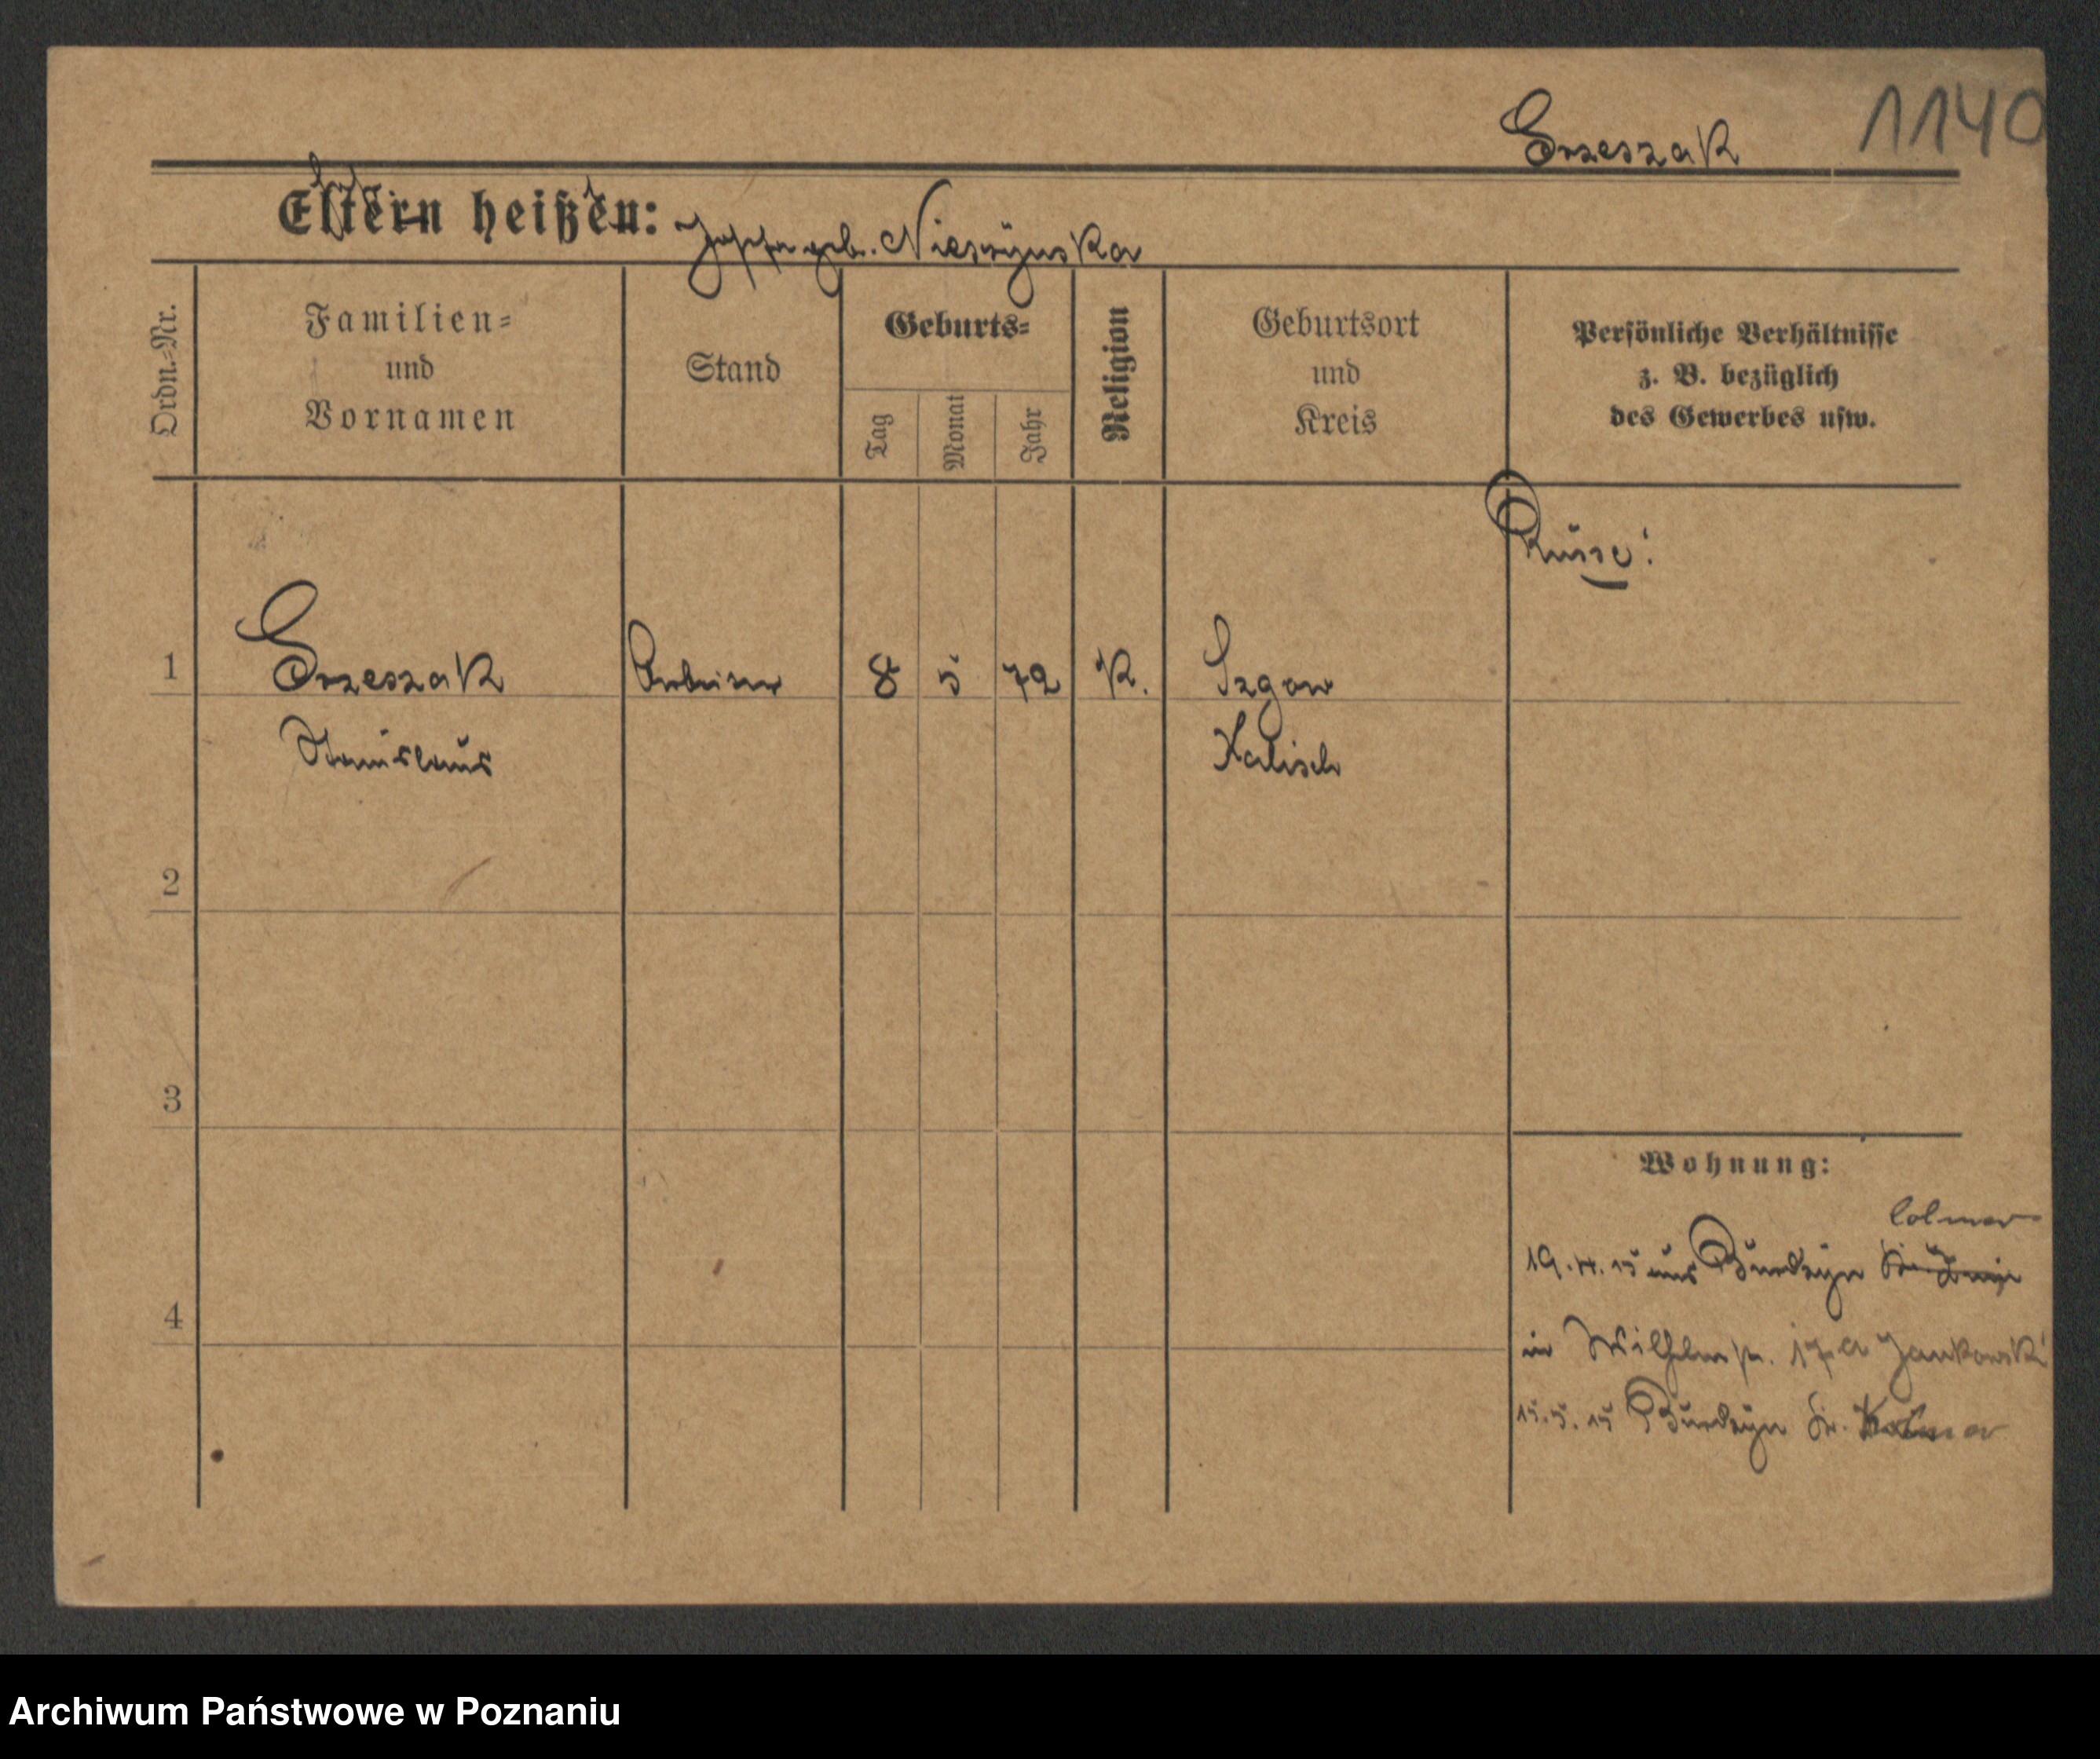 1140
Grzeszak
Eltern heißen: geb. Niesczynska
Ordn.-Nr.
Familien-
und
Vornamen
Stand
Geburts-
Tag
Monat
Jahr
Religion
Geburtsort
und
Kreis
Persönliche Verhältnisse
z. B. bezüglich
des Gewerbes usw.
Russe!
1 Grzeszak Arbeiter 8 5 72 K. Szgow
Stanislaus Kalisch
2
3
4
Wohnung:
Colmar
19.4.15 aus Budzyn Kr.
in Wilhelmstr. 17a Jankowski
15.5.15 Budzyn Kr. Kolmar
Archiwum Państwowe w Poznaniu